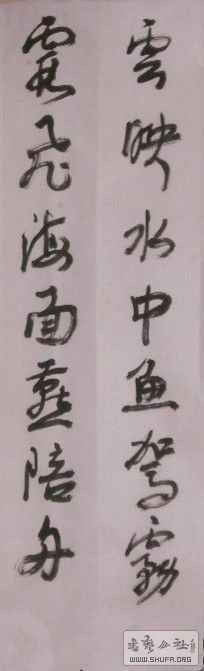 雲映水中魚駕霧
霞飛海面燕陪舟
書藝公社
WWW.SHUFA.ORG